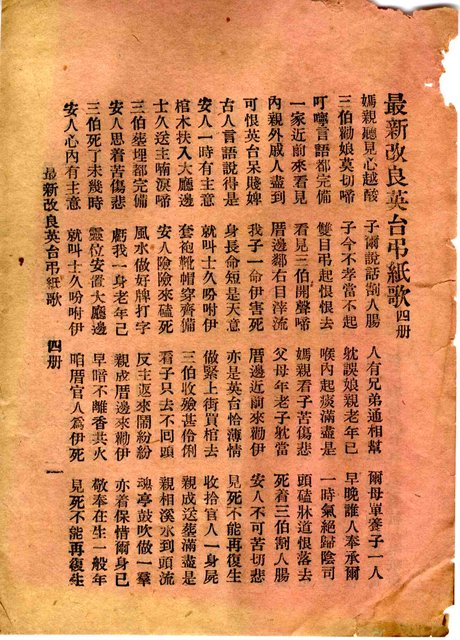 最新改良英台弔紙歌 四册
媽親聽見心越酸 子爾說話割人腸 人有兄弟通相幫 爾母單養子一人
三伯勸娘莫切啼 子今不孝當不起 躭誤娘親老年已 早晚誰人奉承爾
叮嚀言語都完備 雙目弔起恨恨去 喉內起痰滿盡是 一時氣絕歸陰司
一家近前來看見 看見三伯開聲啼 媽親看子苦傷悲 頭磕牀道恨落去
內親外戚人盡到 厝邊鄰右目滓流 父母年老子躭當 死着三伯割人腸
可恨英台呆賤婢 我子一命伊害死 厝邊近前來勸伊 安人不可苦切悲
古人言語說得是 身長命短是天意 亦是英台恰薄情 見死不能再復生
安人一時有主意 就叫士久吩咐伊 做緊上街買棺去 收拾官人一身屍
棺木扶入大廳邊 套袍靴帽穿齊備 三伯收殮甚伶俐 親成送塟滿盡是
士久送主喃淚啼 安人險險來磕死 看子只去不回頭 親相溪水到頭流
三伯塟埋都完備 風水做好牌打字 反主返來鬧紛紛 魂亭鼓吹做一羣
安人思着苦傷悲 虧我一身老年已 親成厝邊來勸伊 亦着保惜爾身已
三伯死了未幾時 靈位安置大廳邊 早暗不離香共火 敬奉在生一般年
安人心內有主意 就叫士久吩咐伊 咱厝官人為伊死 見死不能再復生
最新改良英台弔紙歌 四册 一